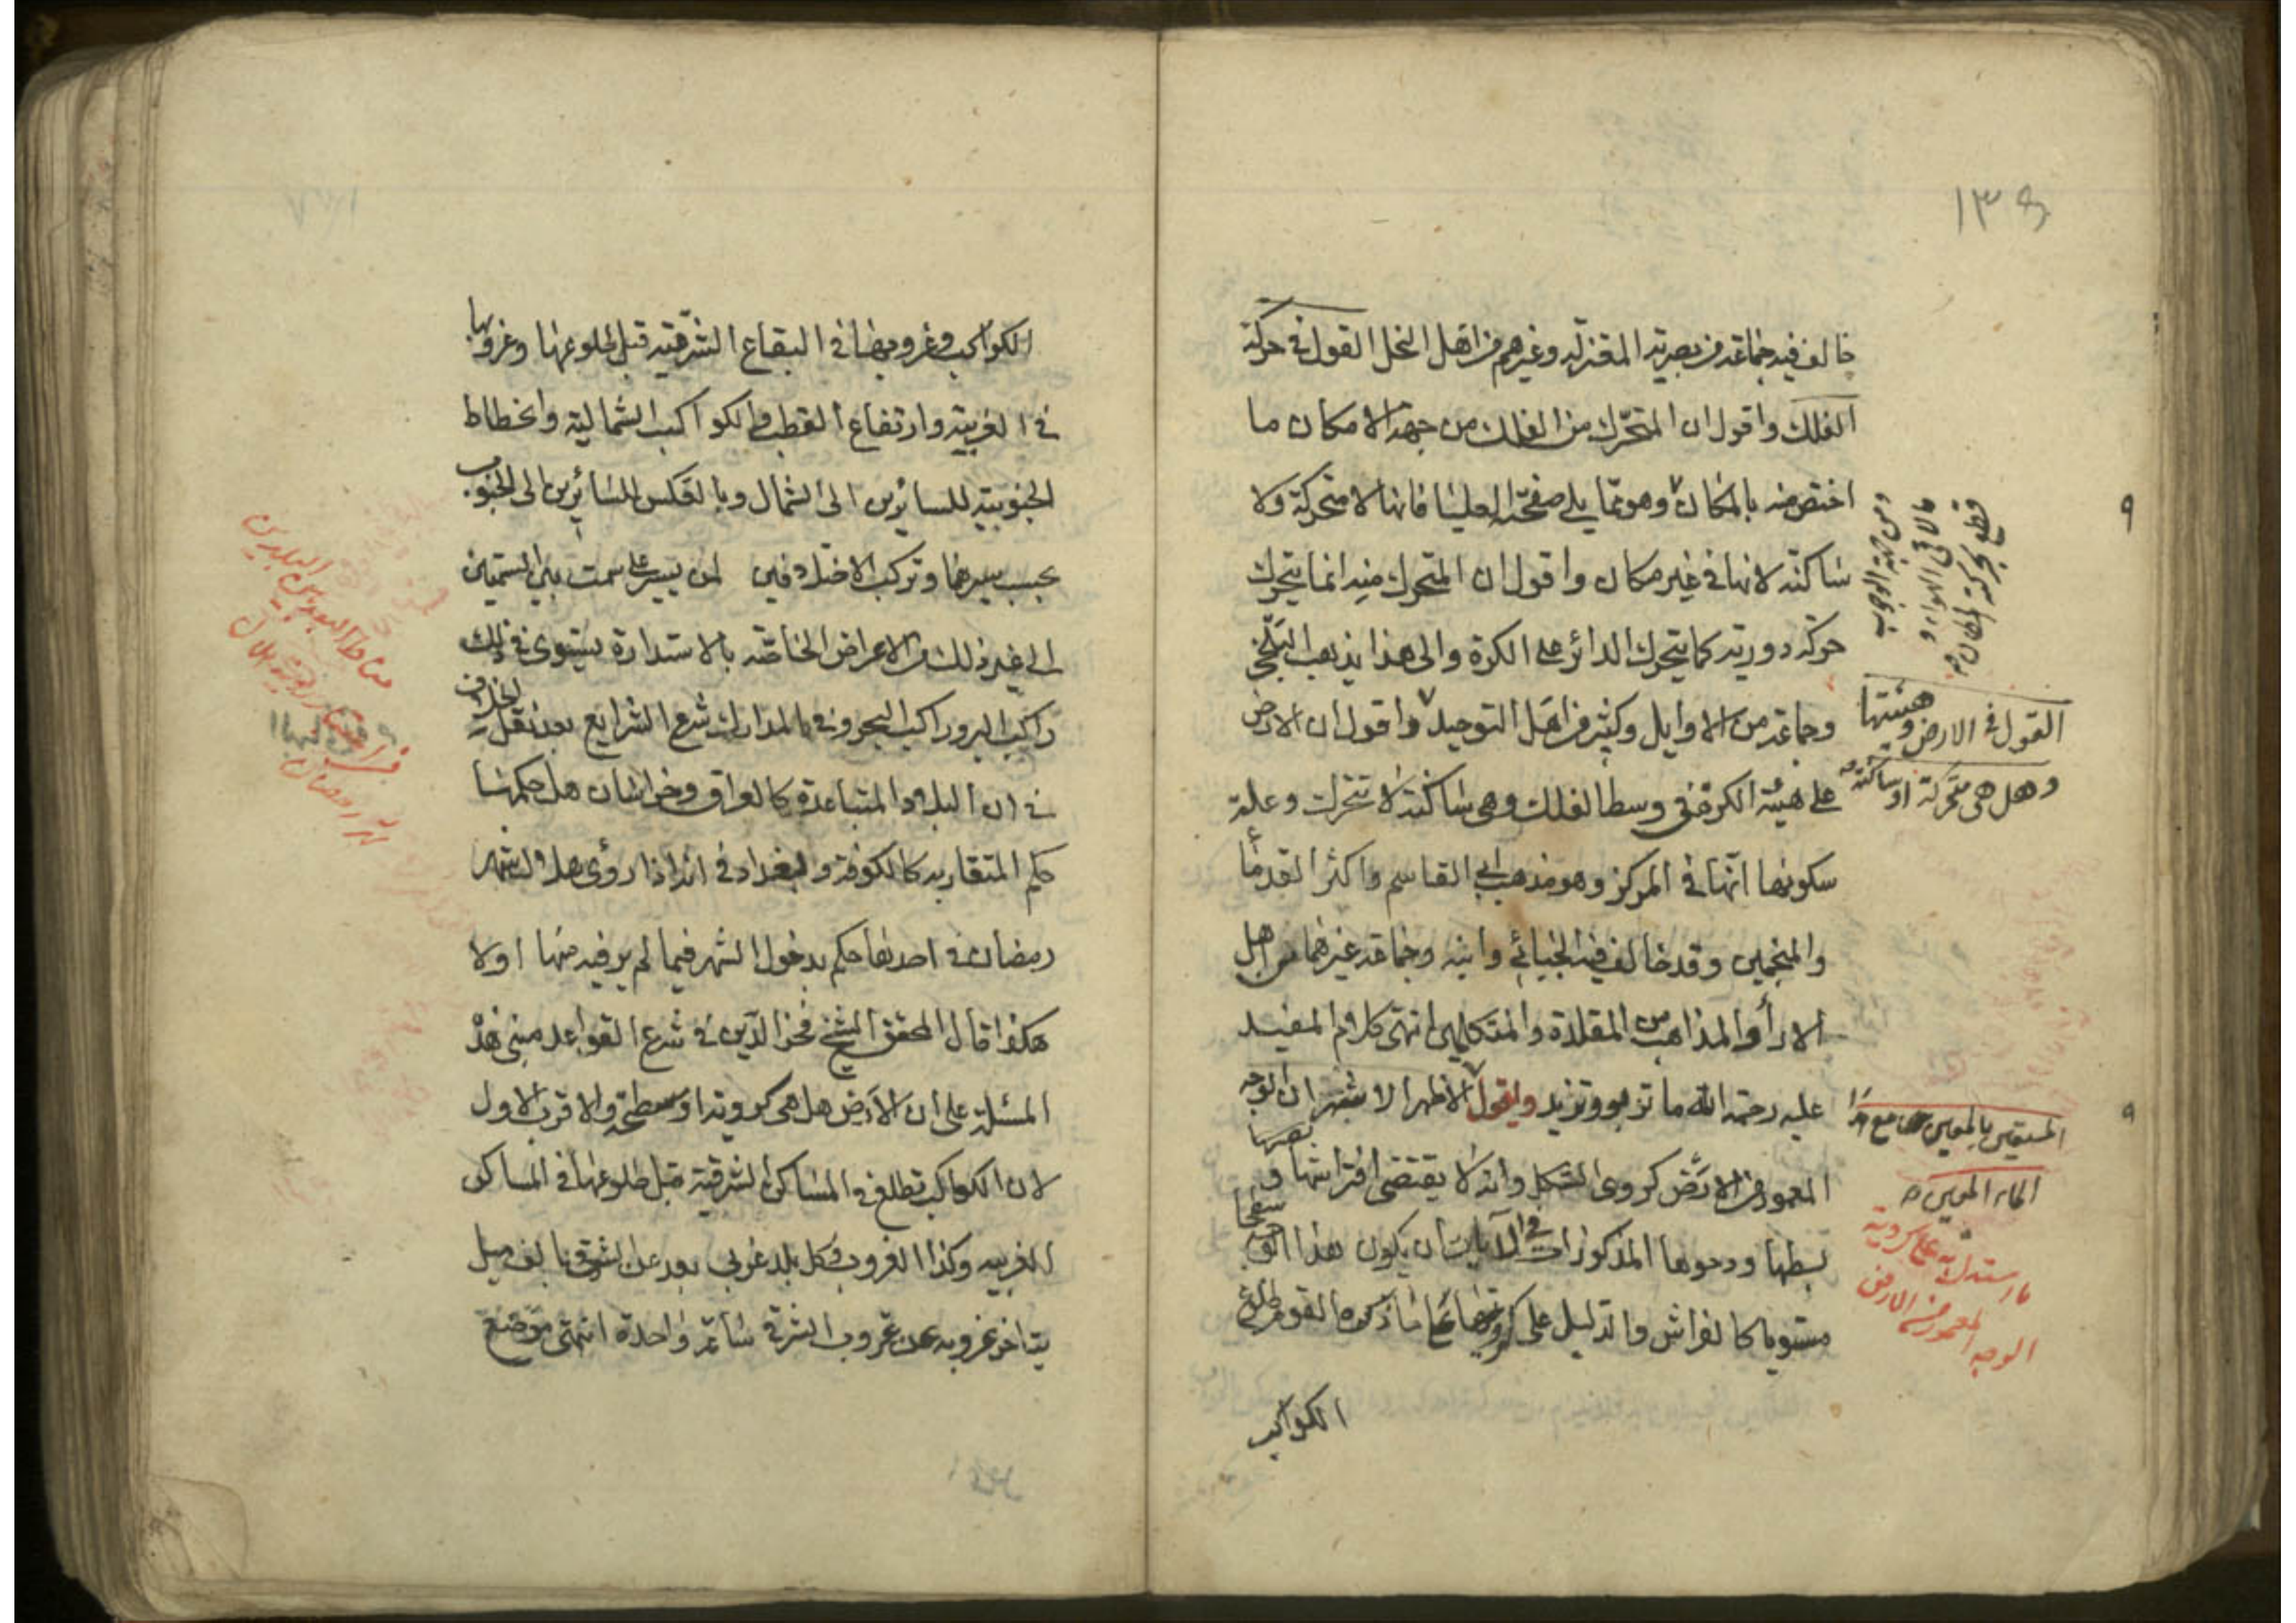 ١٣٥
خالف فيه جماعة من بصرية المعتزلة وغيرهم من اهل النحل القول في حركة
الفلك واقول ان المتحرك من الفلك من جهة الامكان ما
اختص منه بالمكان وهو مما يلي صفحته العليا فانها لا متحركة ولا
ساكنة لانها في غير مكان واقول ان المتحرك منه انما يتحرك
حركة دورية كما يتحرك الدائر على الكرة والى هذا يذهب البلخي
وجماعة من الاوايل وكثير من اهل التوحيد واقول ان الارض
على هيئة الكرة في وسط الفلك وهي ساكنة لا تتحرك وعلة
سكونها انها في المركز وهو مذهب ابي القاسم واكثر القدماء
والمنجمين وقد خالف فيه الجبائي وابنه وجماعة غيرهما من اهل
الاراء والمذاهب من المقلدة والمتكلمين انتهى كلام المفيد
عليه رحمة الله ما تربو وتزيد واقول الاظهر الاشهر ان الوجه
المعمور من الارض كروي الشكل وانه لا يقتضي افتراشها و
بسطها ودحوها المذكورات في الآيات ان يكون هذا الوجه
مستويا كالفراش والدليل على كرويتها ما ذكره القوم طلوع
الكواكب
ومن جهة الوجوب
ما لاقى الهواء و
قطع بحركته المكان
القول في الارض وهيئتها
وهل هي متحركة او ساكنة
٩
٩
الماء المعين
ما يستدل به على كروية
الوجه المعمور من الارض
الكواكب وغروبها في البقاع الشرقية قبل طلوعها وغروبها
في الغربية وارتفاع القطب والكواكب الشمالية وانحطاط
الجنوبية للسائرين الى الشمال وبالعكس للسائرين الى الجنوب
بحسب سيرهما وتركب الاختلافين لمن يسير على سمت بين السمتين
الى غير ذلك من الاعراض الخاصة بالاستدارة يستوي في ذلك
راكب البر وراكب البحر وفي مدارك شرع الشرايع بعد نقل الخلاف
في ان البلاد المتباعدة كالعراق وخراسان هل حكمها
حكم المتقاربة كالكوفة وبغداد في انه اذا رؤي هلال شهر
رمضان في احديها حكم بدخول الشهر فيما لم ير فيه منها اولا
هكذا قال المحقق الشيخ فخر الدين في شرع القواعد مبنى هذه
المسئلة على ان الارض هل هي كروية او مسطحة والاقرب الاول
لان الكواكب تطلع في المساكن الشرقية قبل طلوعها في المساكن
الغربيه وكذا الغروب فكل بلد غربي بعد عن الشرقي بالف ميل
يتاخر غروبه عن غروب الشرقي ساعة واحدة انتهى موضع